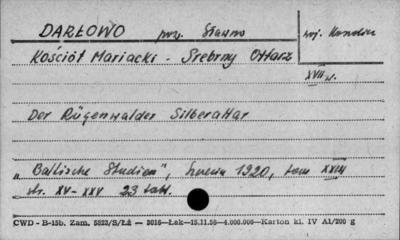 DARŁOWO pow. Sławno
Kościół Mariacki - Srebrny Ołtarz
XVII w.
Der Rügenwalder Silberaltar
„Baltische Studien”, 1920, tom XXIII
str. XV-XXV 23 tabl.
CWD - B-15b. Zam. 5822/S/ŁŻ — 3016—Łek—15.11.56—4.000.000—Karton kl. IV A1/200 g